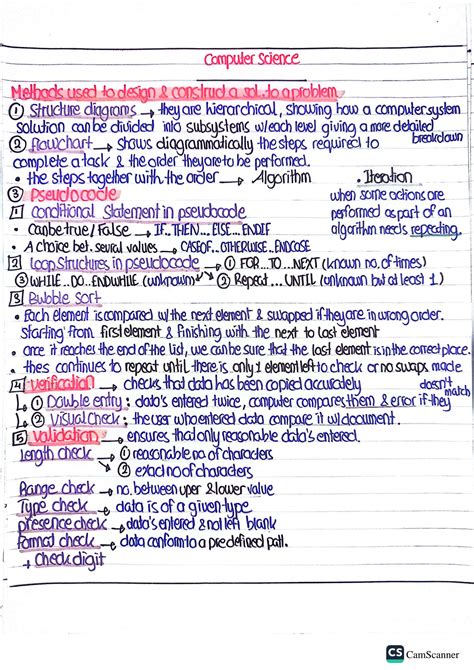 Computer Science
Methods used to design & construct a sol. to a problem
① Structure diagrams → they are hierarchical, showing how a computer system
solution can be divided into subsystems w/ each level giving a more detailed
breakdown
② flowchart → shows diagrammatically the steps required to
complete a task & the order they are to be performed.
• the steps together with the order → Algorithm
• Iteration
③ Pseudocode
when some actions are
1 Conditional Statement in pseudocode
performed as part of an
• Can be true / False → IF...THEN...ELSE...ENDIF
algorithm needs repeating.
• A choice bet. several values → CASEOF..OTHERWISE..ENDCASE
2 Loop Structures in pseudocode → ① FOR...TO...NEXT (known no. of times)
③ WHILE...DO...ENDWHILE (unknown) ② Repeat ....UNTIL (unknown but at least 1)
3 Bubble Sort
• Each element is compared w/ the next element & swapped if they are in wrong order.
starting from first element & finishing with the next to last element
• once it reaches the end of the list, we can be sure that the last element is in the correct place.
• thes continues to repeat until there is only 1 element left to check or no swaps made
4 verification → checks that data has been copied accurately
doesn't
match
↳ ① Double entry : data's entered twice, computer compares them & error if they
↳ ② Visual Check : the user who entered data compare it w/ document.
5 validation → ensures that only reasonable data's entered.
Length check → ① reasonable no. of characters
② exact no of characters
Range check → no. between uper & lower value
Type check → data is of a given type
presence check → data's entered & not left blank
format check → data conform to a predefined patt.
→ Check digit
CS CamScanner